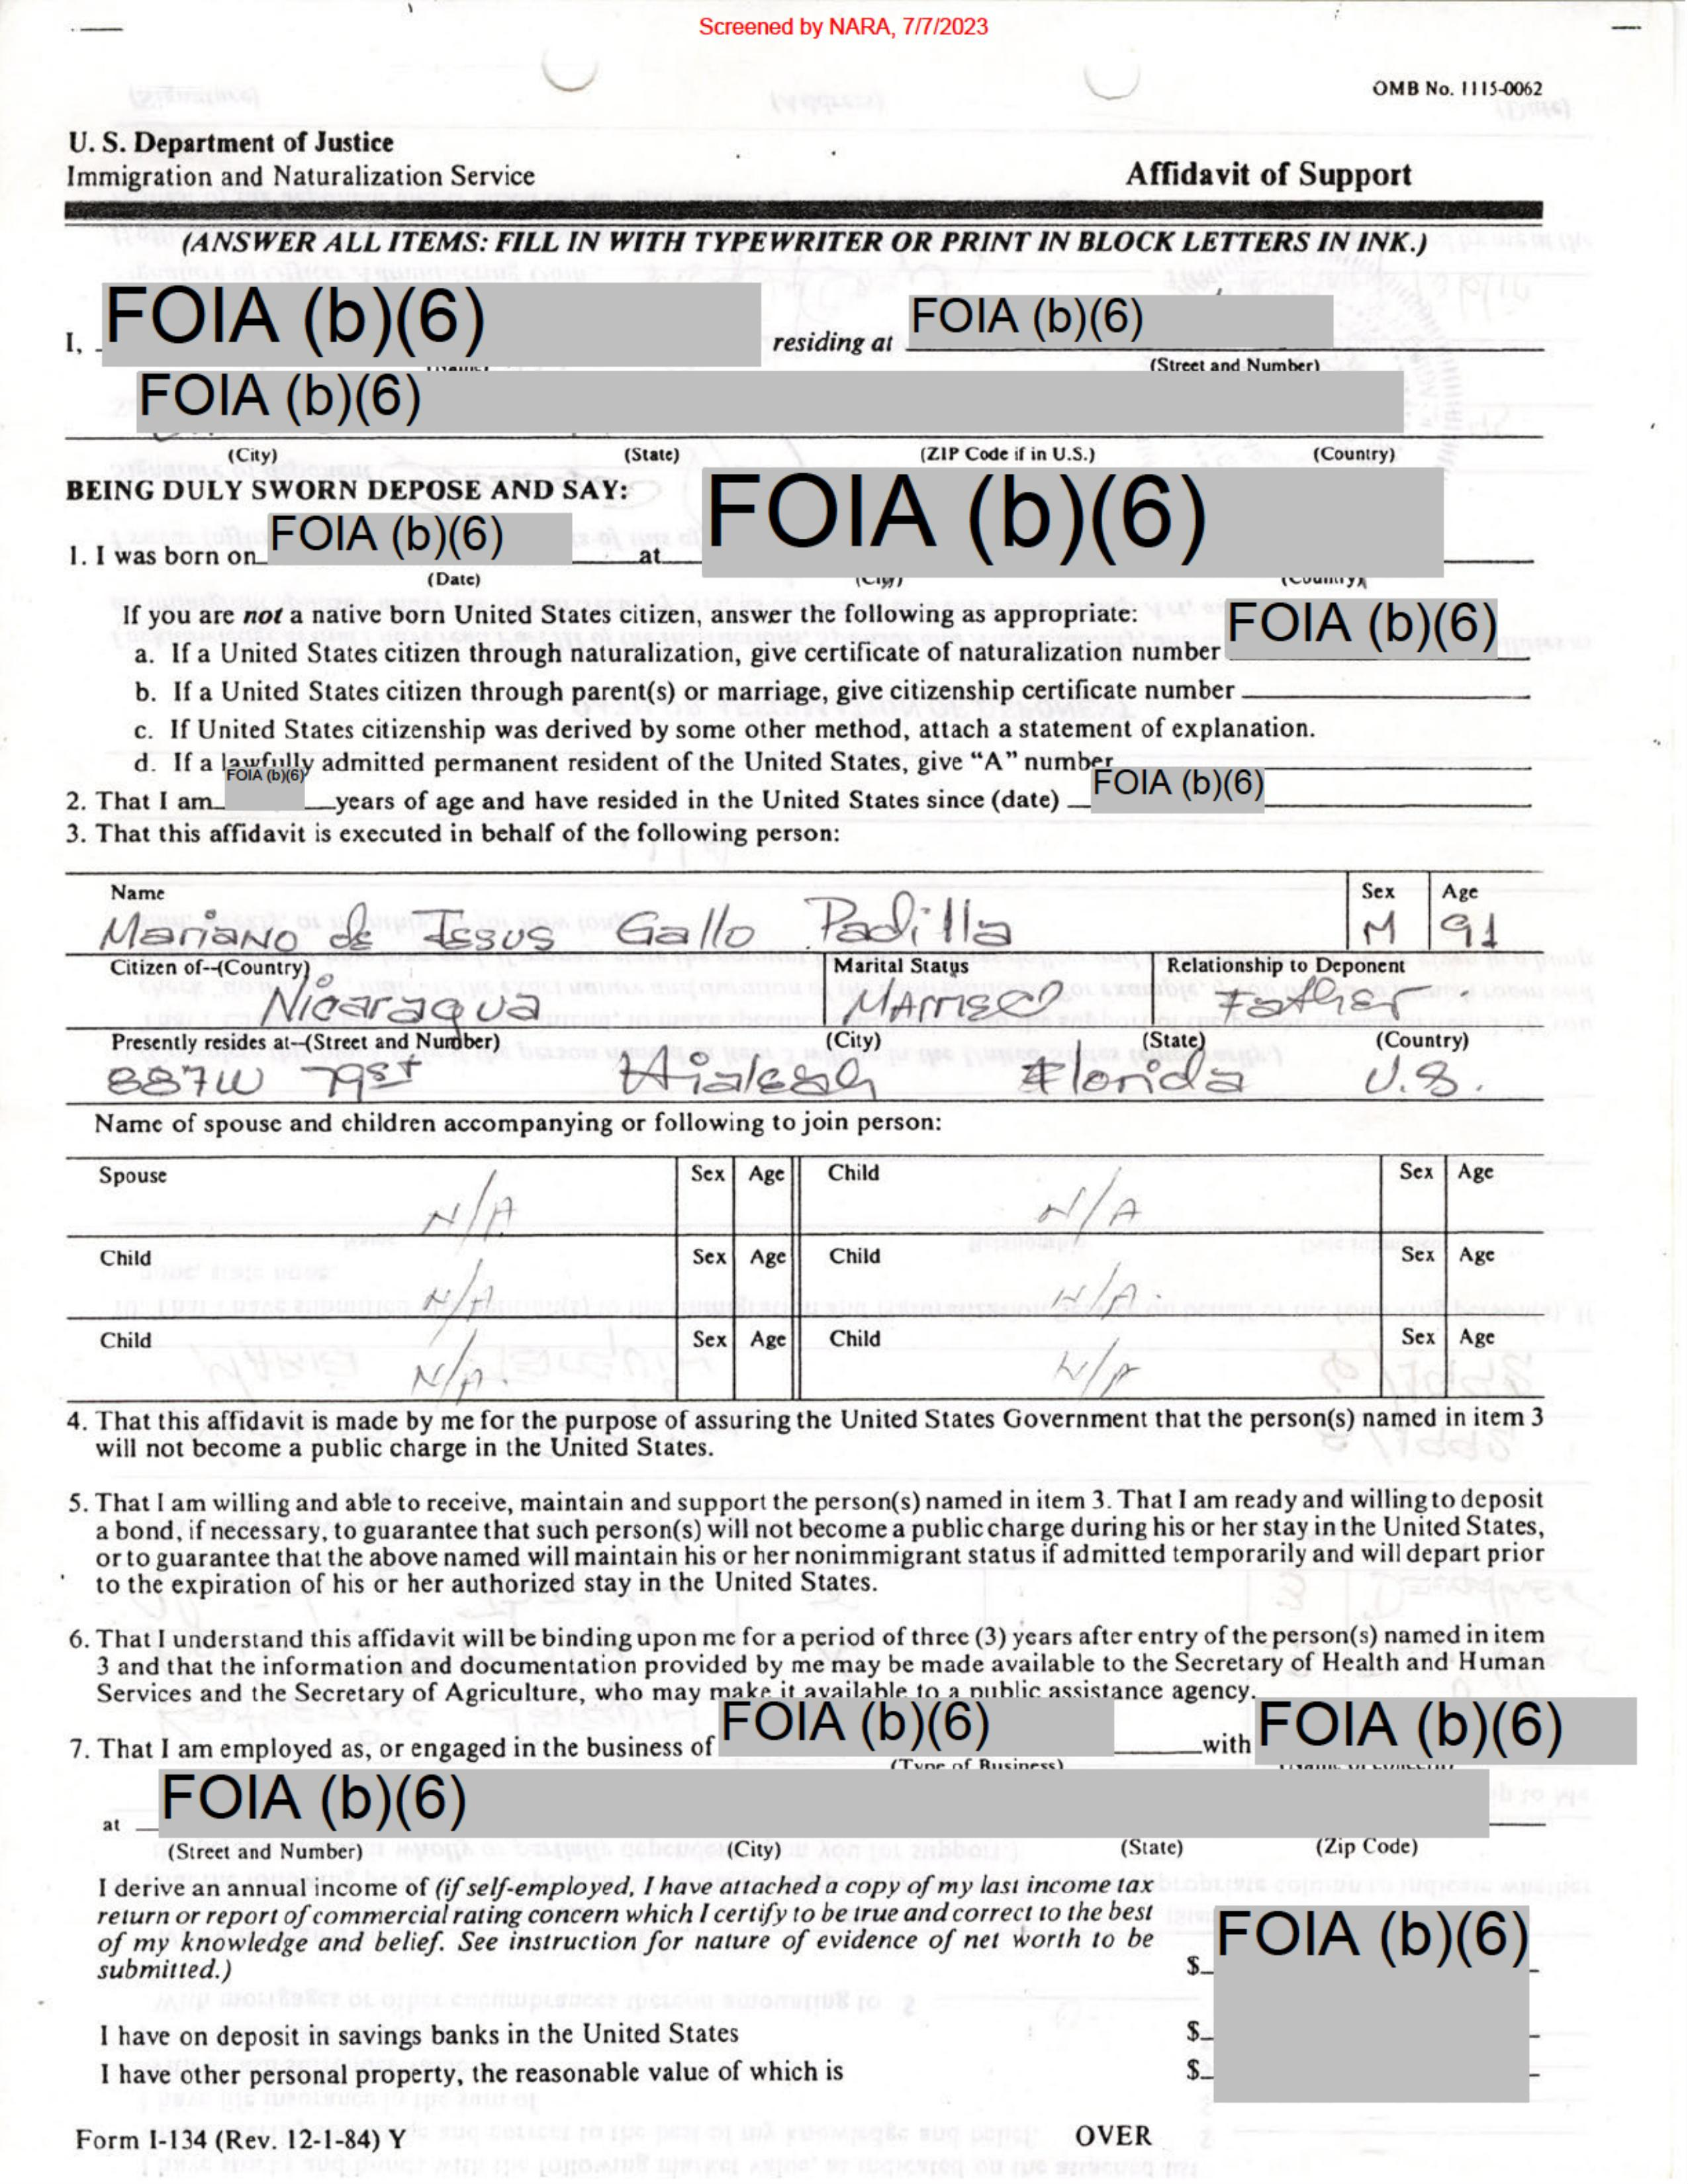 Screened by NARA, 7/7/2023
OMB No. 1115-0062
U. S. Department of Justice
Immigration and Naturalization Service
Affidavit of Support
(ANSWER ALL ITEMS: FILL IN WITH TYPEWRITER OR PRINT IN BLOCK LETTERS IN INK.)
I, FOIA (b)(6) residing at FOIA (b)(6)
(Street and Number)
FOIA (b)(6)
(City) (State) (ZIP Code if in U.S.) (Country)
BEING DULY SWORN DEPOSE AND SAY:
1. I was born on FOIA (b)(6) at FOIA (b)(6)
(Date) (City) (Country)
If you are not a native born United States citizen, answer the following as appropriate:
a. If a United States citizen through naturalization, give certificate of naturalization number FOIA (b)(6)
b. If a United States citizen through parent(s) or marriage, give citizenship certificate number
c. If United States citizenship was derived by some other method, attach a statement of explanation.
d. If a lawfully admitted permanent resident of the United States, give "A" number
2. That I am FOIA (b)(6) years of age and have resided in the United States since (date) FOIA (b)(6)
3. That this affidavit is executed in behalf of the following person:
Name Sex Age
Mariano de Jesus Gallo Padilla M 91
Citizen of--(Country) Marital Status Relationship to Deponent
Nicaragua Married Father
Presently resides at--(Street and Number) (City) (State) (Country)
887W 79st Hialeah Florida U.S.
Name of spouse and children accompanying or following to join person:
Spouse Sex Age Child Sex Age
N/A N/A
Child Sex Age Child Sex Age
N/A N/A.
Child Sex Age Child Sex Age
N/A. N/A
4. That this affidavit is made by me for the purpose of assuring the United States Government that the person(s) named in item 3
will not become a public charge in the United States.
5. That I am willing and able to receive, maintain and support the person(s) named in item 3. That I am ready and willing to deposit
a bond, if necessary, to guarantee that such person(s) will not become a public charge during his or her stay in the United States,
or to guarantee that the above named will maintain his or her nonimmigrant status if admitted temporarily and will depart prior
to the expiration of his or her authorized stay in the United States.
6. That I understand this affidavit will be binding upon me for a period of three (3) years after entry of the person(s) named in item
3 and that the information and documentation provided by me may be made available to the Secretary of Health and Human
Services and the Secretary of Agriculture, who may make it available to a public assistance agency.
7. That I am employed as, or engaged in the business of FOIA (b)(6) with FOIA (b)(6)
(Type of Business)
at FOIA (b)(6)
(Street and Number) (City) (State) (Zip Code)
I derive an annual income of (if self-employed, I have attached a copy of my last income tax
return or report of commercial rating concern which I certify to be true and correct to the best
of my knowledge and belief. See instruction for nature of evidence of net worth to be
submitted.) $ FOIA (b)(6)
I have on deposit in savings banks in the United States $
I have other personal property, the reasonable value of which is $
Form I-134 (Rev. 12-1-84) Y OVER